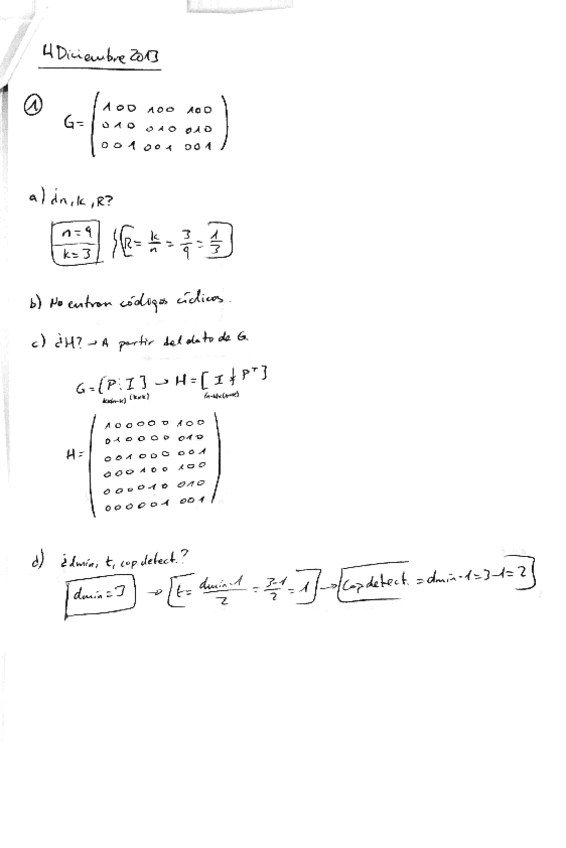 4 Diciembre 2013
① G= (100 100 100
010 010 010
001 001 001)
a) ¿n, k, R?
n=9
k=3 } R= k/n = 3/9 = 1/3
b) No entran códigos cíclicos.
c) ¿H? → A partir del dato de G.
G=[P⋮I] → H=[I⋮Pᵀ]
kx(n-k) (kxk) (n-k)x(n-k)
H= (100000 100
010000 010
001000 001
000100 100
000010 010
000001 001)
d) ¿dmin, t, cap detect.?
dmin=3 → t= dmin-1/2 = 3-1/2 = 1 → Cap detect. = dmin-1=3-1=2